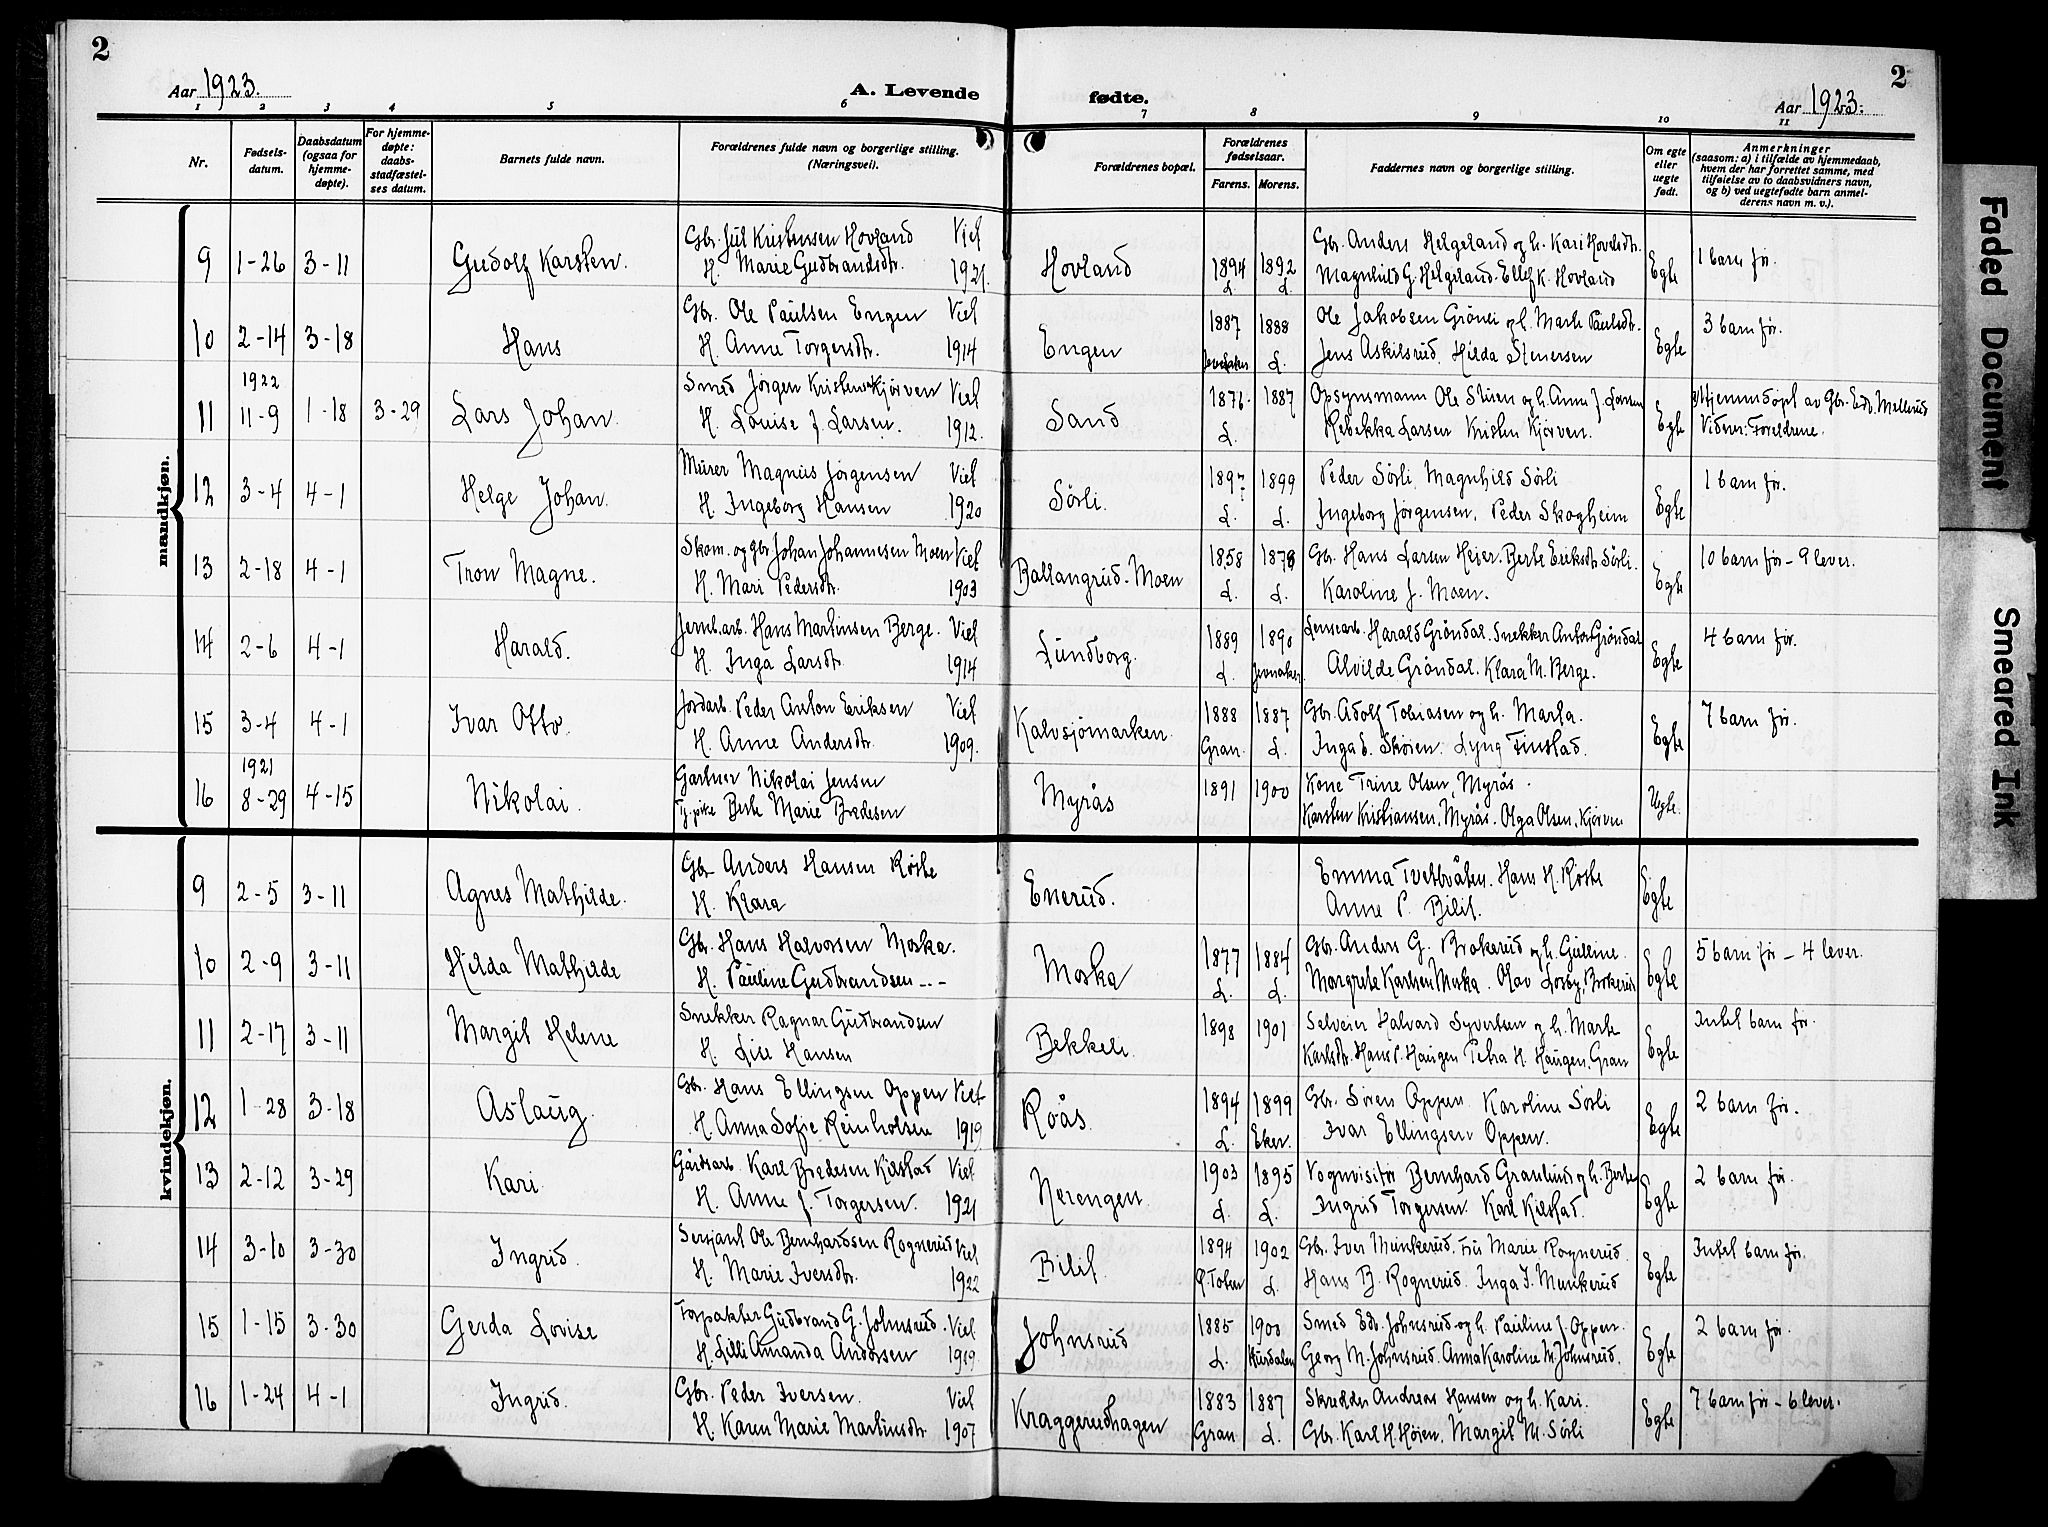 2
Aar 1923.
A. Levende fødte.
Aar 1923.
2
1 2 3 4 5 6 7 8 9 10 11
Nr.
Fødsels-
datum.
Daabsdatum
(ogsaa for
hjemme-
døpte).
For hjemme-
døpte:
daabs-
stadfæstel-
ses datum.
Barnets fulde navn.
Forældrenes fulde navn og borgerlige stilling.
(Næringsvei).
Forældrenes bopæl.
Forældrenes
fødselsaar.
Farens. Morens.
Faddernes navn og borgerlige stilling.
Om egte
eller
uegte
født.
Anmerkninger
(saasom: a) i tilfælde av hjemmedaab,
hvem der har forrettet samme, med
tilføielse av to daabsvidners navn,
og b) ved uegtefødte barn anmel-
derens navn m. v.).
mandkjøn.
9 1-26 3-11 Gudolf Karsten. Gbr. Jul Kristensen Hovland Viet Hovland 1894 1892 Gbr. Anders Helgeland og h. Kari Hovelsdtr. Egte 1 barn før.
H. Marie Gudbrandsdtr. 1921. L. L. Magnhild G. Helgeland. Ellef K. Hovland
10 2-14 3-18 Hans Gbr. Ole Paulsen Engen Viet Engen 1887 1888 Ole Jakobsen Grönei og h. Marte Paulsdtr. Egte 3 barn før.
H. Anne Torgersdtr. 1914 Jevnaker L. Jens Askilsrud, Hilda Stenersen
1922
11 11-9 1-18 3-29 Lars Johan. Smed Jørgen Kristensen Kjørven Viet Sand 1876. 1887 Opsynsmann Ole Stiren og h. Anna J. Larsen Egte Hjemmedøpt av Gbr. Edv. Mellerud
H. Louise J. Larsen. 1912. L. Rebekka Larsen Kristen Kjørven. Vidner: Foreldrene.
12 3-4 4-1 Helge Johan. Murer Magnus Jørgensen Viet Sørli. 1897 1899 Peder Sørli, Magnhild Sørli Egte 1 barn før.
H. Ingeborg Hansen 1920 L. L. Ingeborg Jørgensen, Peder Skogheim
13 2-18 4-1 Tron Magne. Skom. og gbr Johan Johannesen Moen Viet Ballangrud-Moen 1858 1878 Gbr. Hans Larsen Heier. Berte Eriksdtr Sørli. Egte 10 barn før - 9 lever.
H. Mari Pedersdtr. 1903 L. L. Karoline J. Moen.
14 2-6 4-1 Harald. Jernb.arb. Hans Martinsen Berge. Viet Lundborg. 1889 1890 Lensearb. Harald Gröndal. Snekker Anton Gröndal Egte 4 barn før.
H. Inga Larsdtr. 1914 L. Jevnaker. Alvilde Gröndal. Klara M. Berge.
15 3-4 4-1 Ivar Otto. Jordarb. Peder Anton Eriksen Viet Kalvsjömarken. 1888 1887 Gbr. Adolf Tobiasen og h. Marta. Egte 7 barn før.
H. Anne Andersdtr. 1909. Gran. L. Inga d. Skøien. Lyng Finstad.
1921
16 8-29 4-15 Nikolai. Gartner Nikolai Jensen Myrås 1891 1900 Kone Trine Olsen, Myrås. Uegte.
Tj.pike Berte Marie Bredesen Karsten Kristiansen, Myrås. Olga Olsen, Kjørven
kvindekjøn.
9 2-5 3-11 Agnes Mathilde. Gbr Anders Hansen Røste Enerud. Emma Tvetbråten. Hans H. Røste Egte
H. Klara Anne P. Bilit.
10 2-9 3-11 Hilda Mathilde Gbr. Hans Halvorsen Moska. Moska 1877 1884 Gbr. Anders G. Brokerud og h. Gulline. Egte 5 barn før - 4 lever.
H. Pauline Gudbrandsen --- L. L. Margrete Karlsen Moska. Olav Losby, Brokerud
11 2-17 3-11 Margit Helene Snekker Ragnar Gudbrandsen Bekkeli 1898 1901 Selveier Halvard Syvertsen og h. Marte Egte Intet barn før.
H. Lise Hansen Karlsdtr. Hans P. Haugen Petra H. Haugen, Gran
12 1-28 3-18 Aslaug. Gbr. Hans Ellingsen Oppen Viet Roås. 1894 1899 Gbr. Søren Oppen. Karoline Sørli Egte 2 barn før.
H. Anna Sofie Reinholsen 1919 L. Eker. Ivar Ellingsen Oppen.
13 2-12 3-29 Kari. Gårdsarb. Karl Bredesen Kilstad Viet Nerengen. 1903 1895 Vognvisitør Bernhard Granlund og h. Berte Egte 2 barn før.
H. Anne J. Torgersen. 1921 L. L. Ingrid Torgersen. Karl Kilstad.
14 3-10 3-30 Ingrid. Sersjant Ole Bernhardsen Rognerud Viet Bilit. 1894 1902 Gbr. Iver Munkerud. Fru Marie Rognerud. Egte Intet barn før.
H. Marie Iversdtr. 1922 Ø. Toten L. Hans B. Rognerud. Inga I. Munkerud
15 1-15 3-30 Gerda Lovise Forpakter Gudbrand G. Johnsrud. Viet Johnsrud 1885 1900 Smed Edv. Johnsrud og h. Pauline J. Oppen. Egte 2 barn før.
H. Lilli Amanda Andersen 1919. L. Hurdalen Georg M. Johnsrud. Anna Karoline M. Johnsrud.
16 1-24 4-1 Ingrid. Gbr. Peder Iversen. Viet Kraggerudhagen 1883 1887 Skredder Andreas Hansen og h. Kari. Egte 7 barn før - 6 lever.
H. Karen Marie Martinsdtr. 1907 Gran L. Gbr. Karl H. Høien, Margit M. Sørli
Faded Document
Smeared Ink